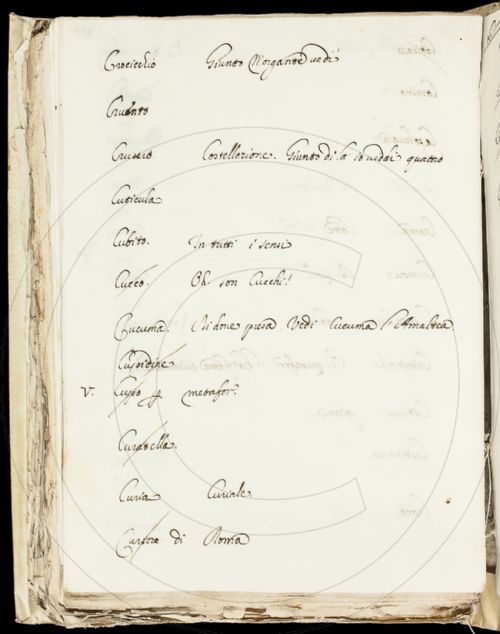 Crocicchio Giunto Morgante undi
Cruento
Crusero. Costellazione. Giunto di la io vidi quattro
Cuticula
Cubito. In tutti i sensi
Cucco. Oh son Cucchi!
Cucuma. Vedi Cucuma l'Amaltea
Cupidine
V. Cupo metafor.
Curatella.
Curia Curiale
Cursore di Roma